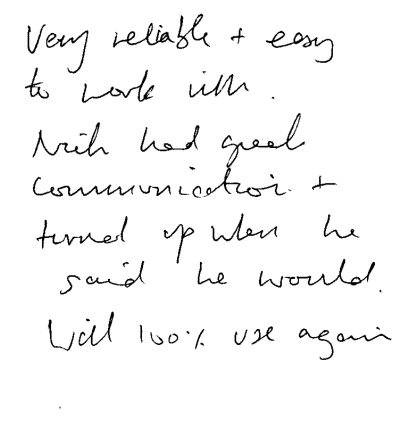 Very reliable + easy
to work with.
had great
communication +
turned up when he
said he would.
Will 100% use again